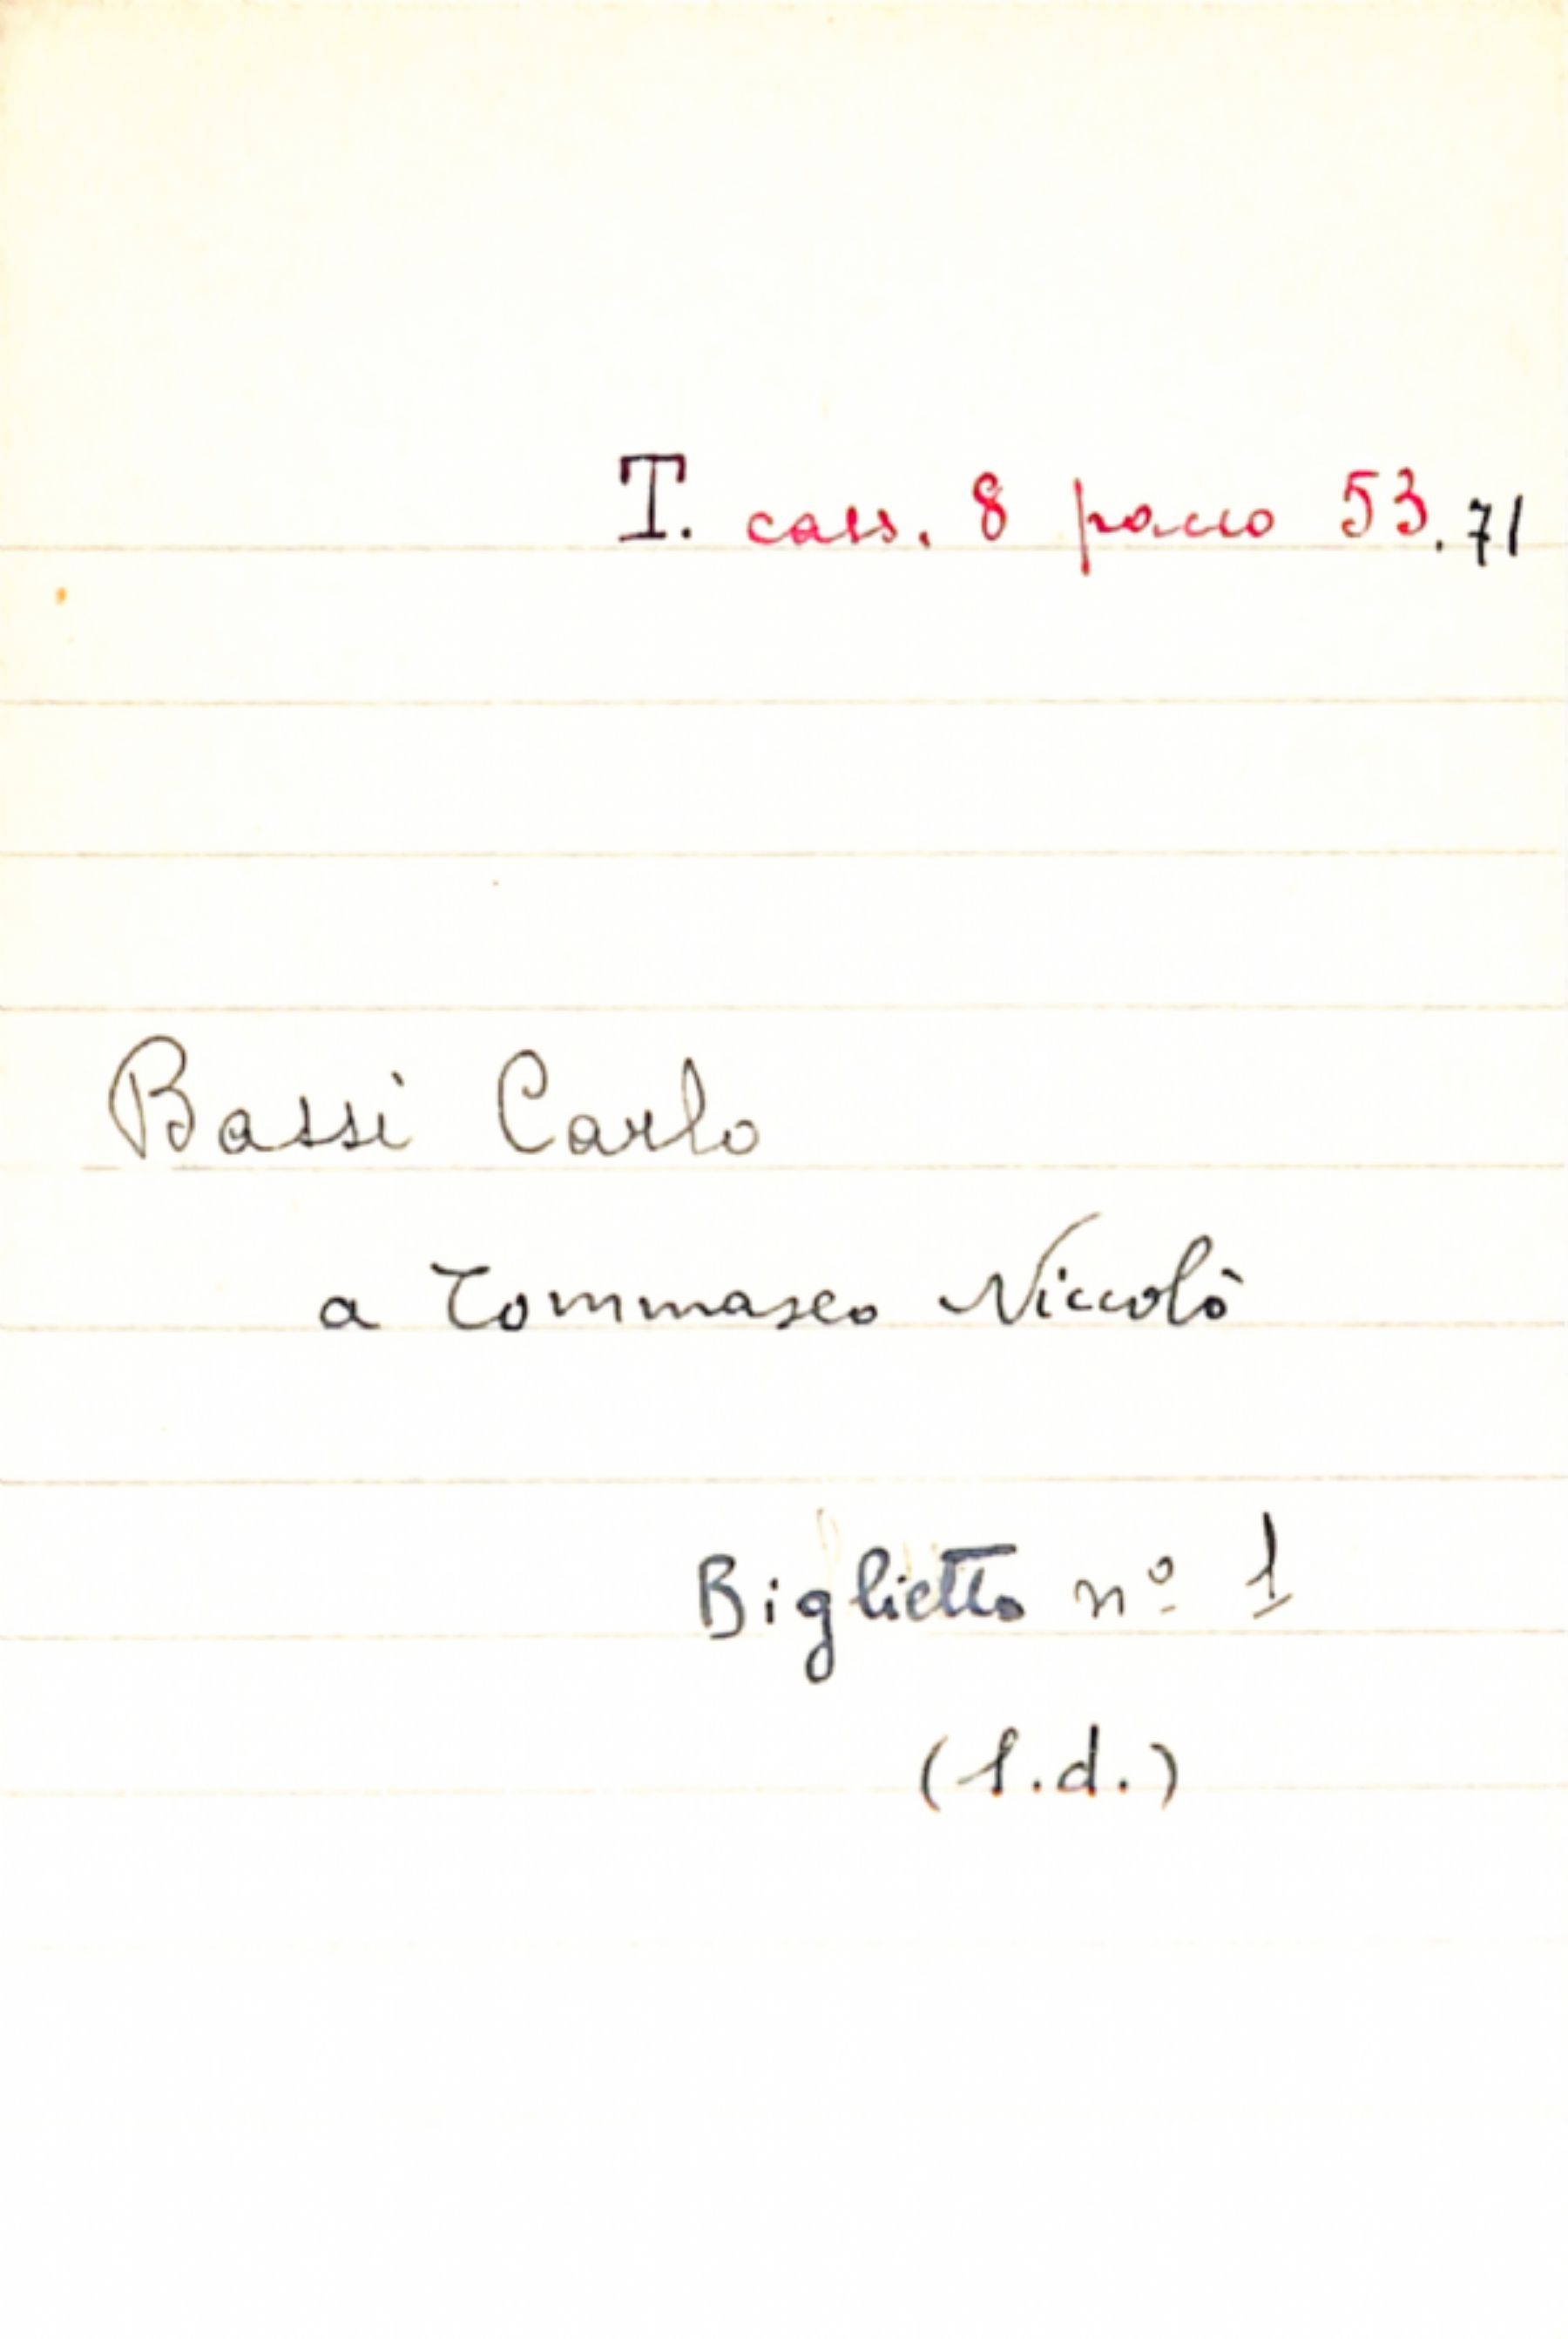 T. cass. 8 pacco 53.71
Bassi Carlo
a Tommaseo Niccolò
Biglietto nº 1
(s.d.)